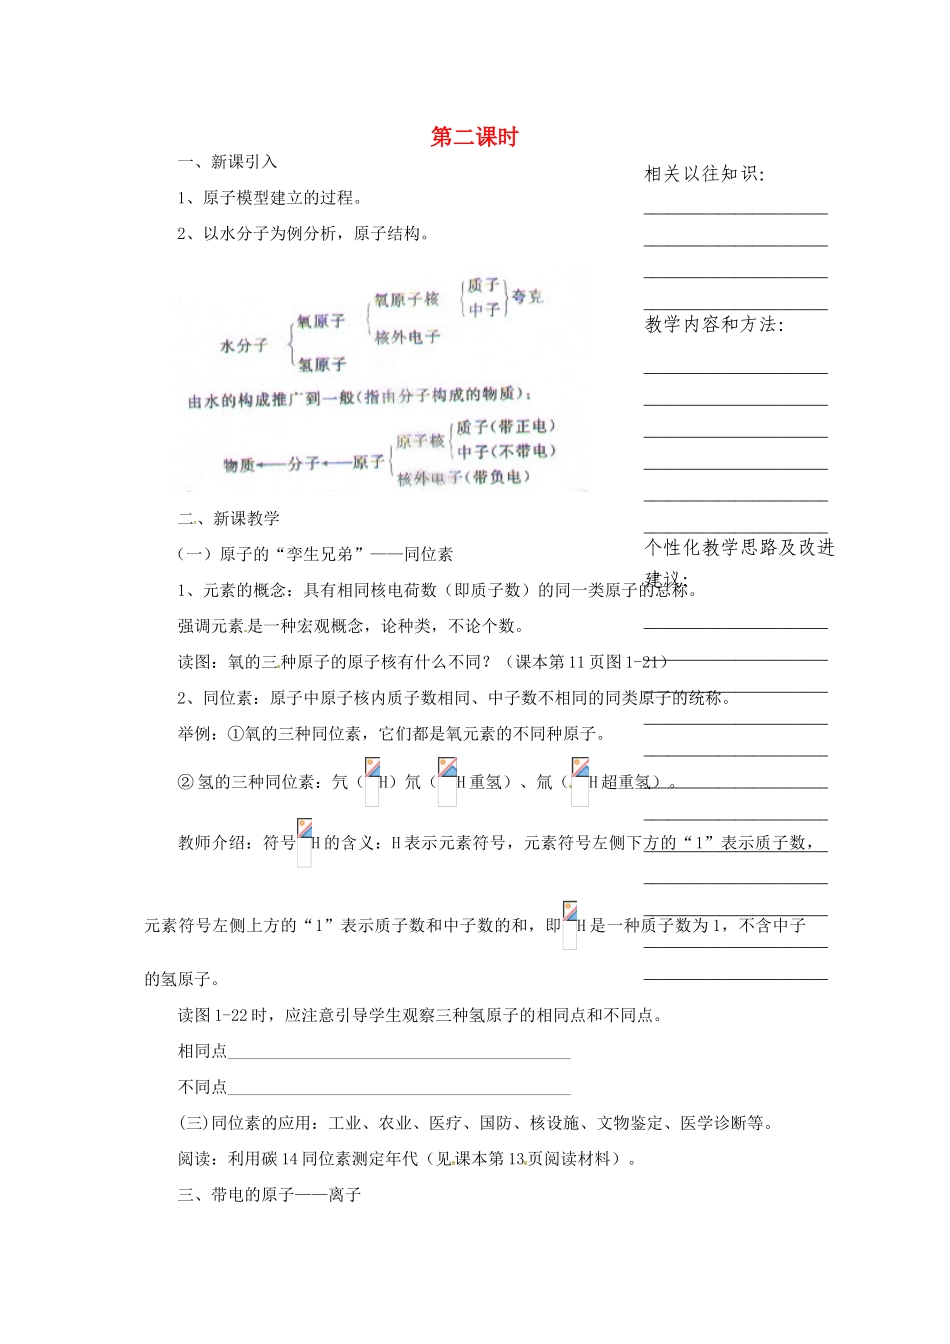 第二课时
一、新课引入
1、原子模型建立的过程。
2、以水分子为例分析，原子结构。
水分子 氧原子 氢原子 氧原子核 核外电子 质子 中子 夸克
由水的构成推广到一般(指由分子构成的物质)：
物质←—分子←—原子 原子核 核外电子(带负电) 质子(带正电) 中子(不带电)
二、新课教学
（一）原子的“孪生兄弟”——同位素
1、元素的概念：具有相同核电荷数（即质子数）的同一类原子的总称。
强调元素是一种宏观概念，论种类，不论个数。
读图：氧的三种原子的原子核有什么不同？（课本第11页图1-21）
2、同位素：原子中原子核内质子数相同、中子数不相同的同类原子的统称。
举例：①氧的三种同位素，它们都是氧元素的不同种原子。
②氢的三种同位素：氕（H）氘（H重氢）、氚（H超重氢）。
教师介绍：符号H的含义：H表示元素符号，元素符号左侧下方的“1”表示质子数，
元素符号左侧上方的“1”表示质子数和中子数的和，即H是一种质子数为1，不含中子
的氢原子。
读图1-22时，应注意引导学生观察三种氢原子的相同点和不同点。
相同点________________________________________
不同点________________________________________
(三)同位素的应用：工业、农业、医疗、国防、核设施、文物鉴定、医学诊断等。
阅读：利用碳14同位素测定年代（见课本第13页阅读材料）。
三、带电的原子——离子
相关以往知识：
教学内容和方法：
个性化教学思路及改进
建议：